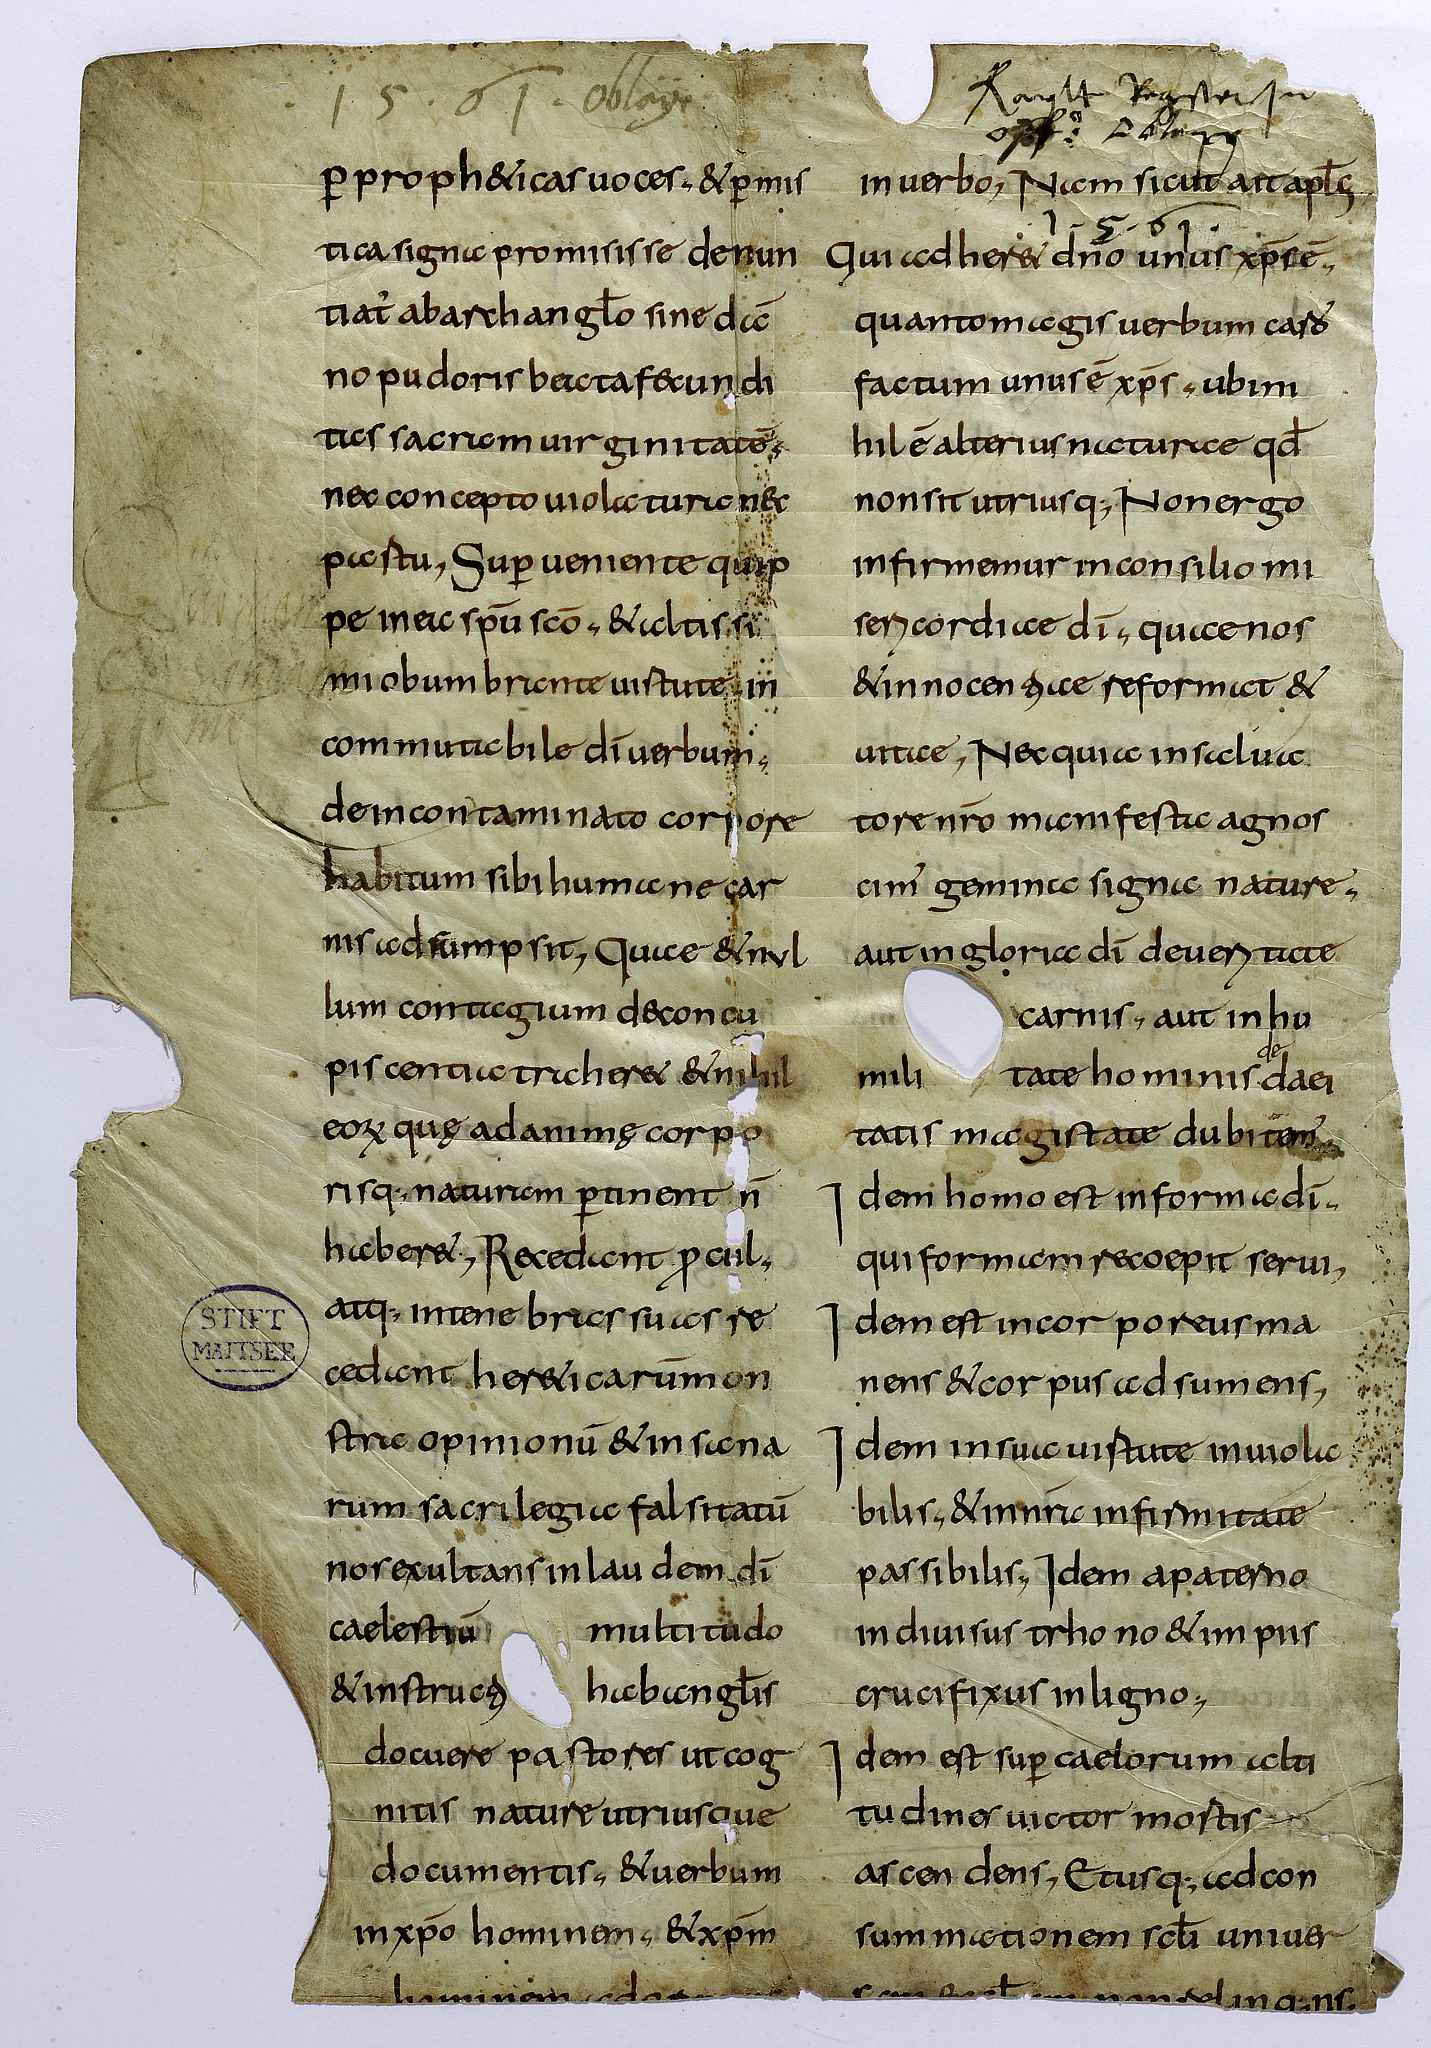 1 5 · 6 1 · Oblaye
Raytt Register In
1 · 5 · 6 1
ꝑ proph&icas uoces · & ꝑ mis
tica signa promisisse denun
tiat᷑ ab archanglo sine dam̄
no pudoris beata fecundi
tas sacram uirginitatē ·
nec concepto uiolatura nec
partu, Suꝑueniente quip
pe in ea spū scō · & altissi
mi obumbrante uirtute in
commutabile dī uerbum ·
de incontaminato corpore
habitum sibi humane car
nis adsumpsit, Quae & nul
lum contagium de concu
piscentia traher& & nihil
eoꝝ quę ad animę corpo
risq· naturam ꝑtinent n̄
haber&, Recedant ꝓcul ·
atq· in tenebras suas re
cedant her&icarū mon
stra opinionū & insana
rum sacrilegia falsitatū
nos exultans in laudem dī
caelestiū multitudo
& instructi hab anglis
docuere pastores ut cog
nitis nature utriusque
documentis · & uerbum
in xp̄o hominem · & xp̄m
hominem
in uerbo, Nam sicut ait aplꝰs
Qui adher& dn̄o unus xp̄s ē ·
quanto magis uerbum caro
factum unus ē xp̄s · ubi ni
hil ē alterius naturae qd̄
non sit utriusq·, Non ergo
infirmemur in consilio mi
sericordiae dī · quae nos
& innocentiae reformat &
uitae, Nec quia in salua
tore nr̄o manifesta agnos
cim᷑ gemina signa nature ·
aut in gloria dī de ueritate
carnis · aut in hu
de
militate hominis daei
tatis magistate dubitem᷑ ·
Idem homo est in forma dī ·
qui formam recoepit serui,
Idem est incorporeus ma
nens & corpus adsumens,
Idem in sua uirtute inuiola
bilis · & in nr̄a infirmitate
passibilis, Idem a paterno
indiuisus trhono & impiis
crucifixus in ligno ·
Idem est suꝑ caelorum alti
tudines uictor mortis
ascendens, Et usq· ad con
summationem scłi uniuer
sam non relinq·ns ·
STIFT
MATTSEE